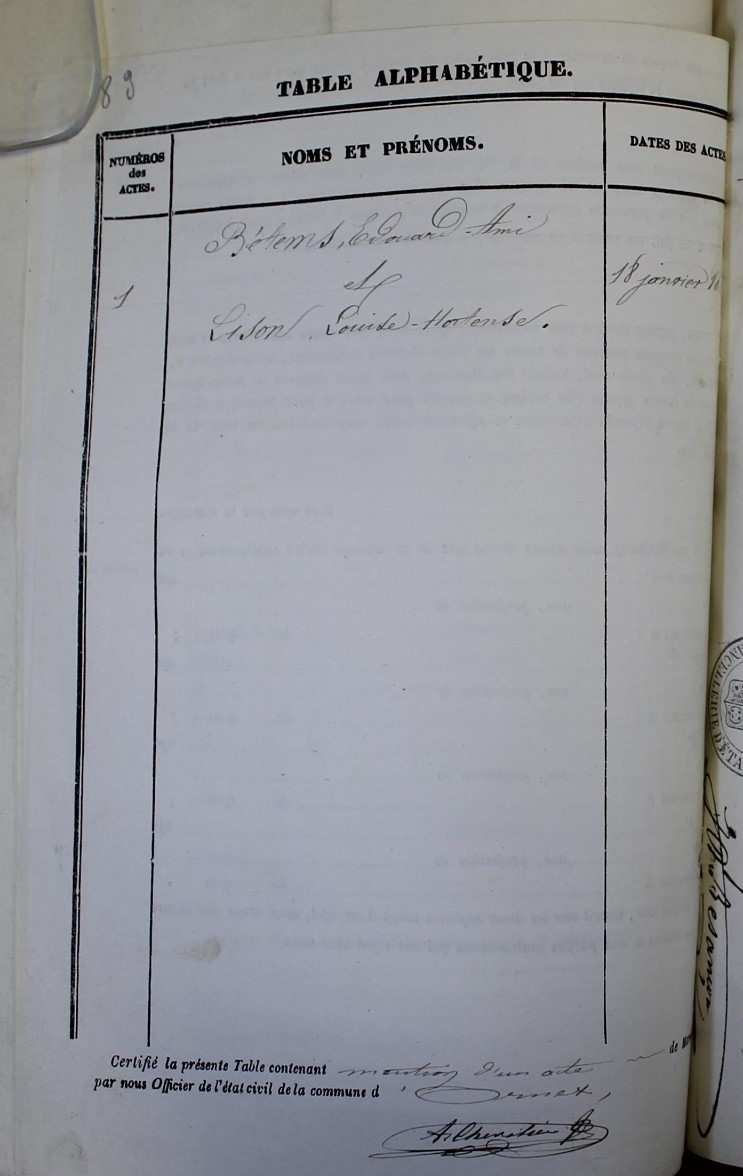 89
TABLE ALPHABÉTIQUE.
NUMÉROS
des
ACTES.
NOMS ET PRÉNOMS.
DATES DES ACTES
Bétems, Edouard-Ami
1
et
18 janvier
Lison, Louise-Hortense.
Certifié la présente Table contenant mention d'un acte de
par nous Officier de l'état civil de la commune d